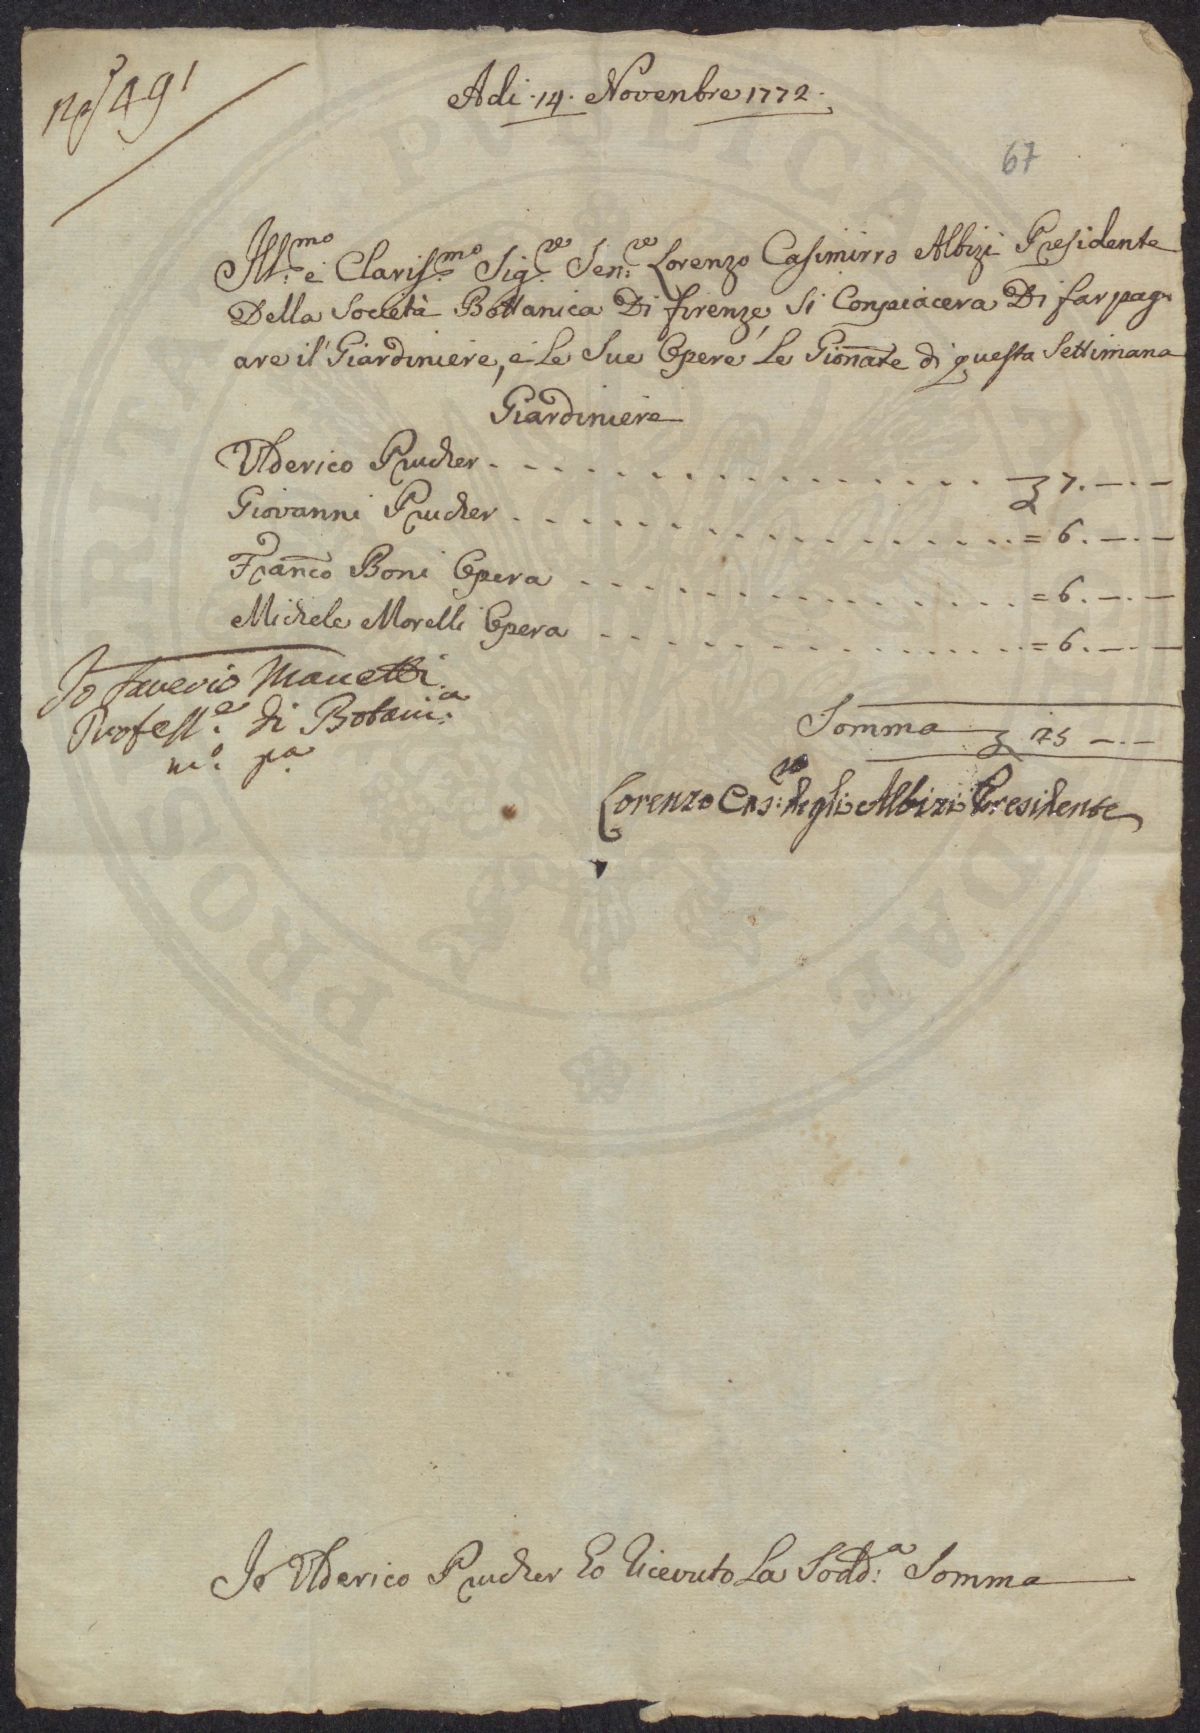 No 491
Adi 14. Novenbre 1772.
67
Ill.mo e Clariss.mo Sig.re Sen.re Lorenzo Casimirro Albizi Presidente
Della Società Bottanica Di firenze, Si Conpiacera Di far pag-
are il Giardiniere, e Le Sue Opere Le Gionate di questa Settimana
Giardiniere
Ulderico Prucher . . . . . . . . . . . . . . . . 7. — . —
Giovanni Prucher . . . . . . . . . . . . . . . . = 6. — . —
Franco Boni Opera . . . . . . . . . . . . . . . . = 6. — . —
Michele Morelli Opera . . . . . . . . . . . . . . . . = 6. — . —
Io Saverio Manetti
Profess.e di Botani.a
m.o pa
Somma 25 — . —
Lorenzo Cas.ro degli Albizi Presidente
Io Ulderico Prucher Eo Ricevuto La Sodd.a Somma
PROPRIETAS PUBLICA
DAE